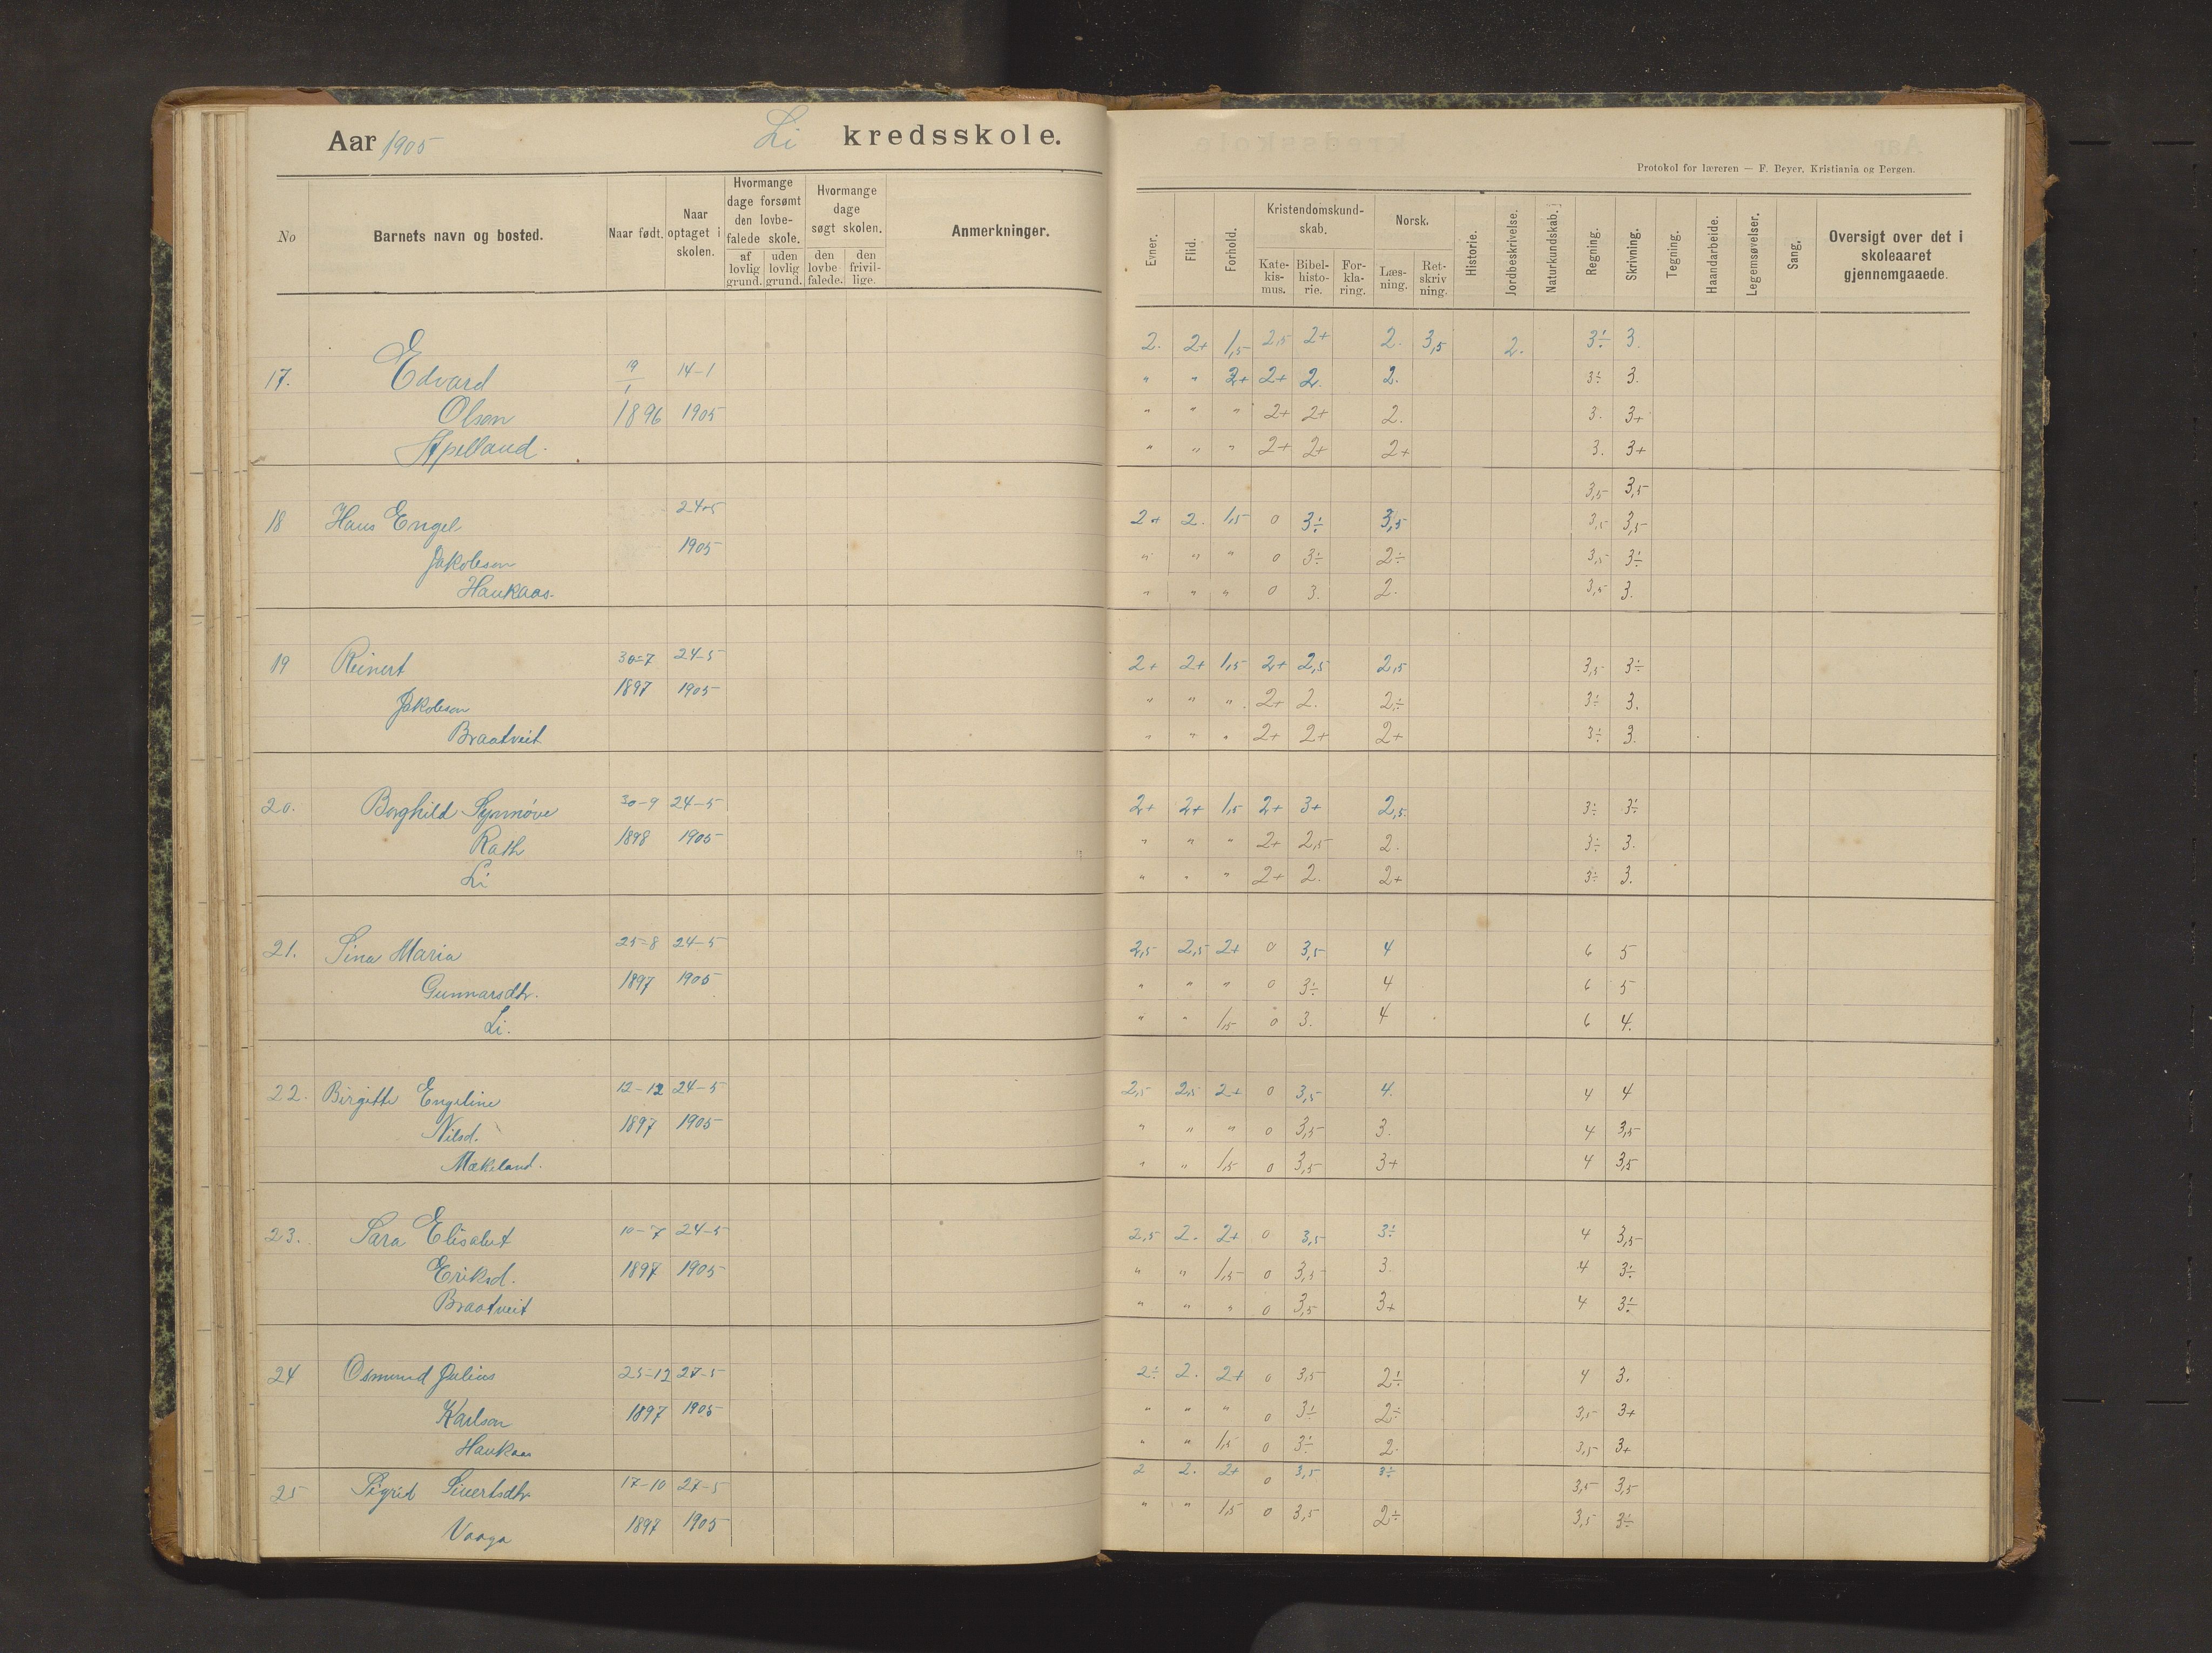 Aar 1905 Li kredsskole.
No Barnets navn og bosted. Naar født. Naar optaget i skolen. Hvormange dage forsømt den lovbefalede skole. af lovlig grund. uden lovlig grund. Hvormange dage søgt skolen. den lovbefalede. den frivillige. Anmerkninger.
17. Edvard 19/1 14-1
Olsen 1896 1905
Apelland.
18 Hans Engel 24-5
Jakobsen 1905
Haukaas.
19 Reinert 30-7 24-5
Jakobsen 1897 1905
Braatveit
20. Borghild Synnøve 30-9 24-5
Rath 1898 1905
Li
21. Sina Maria 25-8 24-5
Gunnarsdtr. 1897 1905
Li.
22. Birgitte Engeline 12-12 24-5
Nilsd. 1897 1905
Mækeland.
23. Sara Elisabet 10-7 24-5
Eriksd. 1897 1905
Braatveit
24 Osmund Julius 25-12 27-5
Karlsen 1897 1905
Haukaas
25 Sigrid Sivertsdtr. 17-10 27-5
Vaaga 1897 1905
Protokol for læreren — F. Beyer, Kristiania og Bergen.
Evner. Flid. Forhold. Kristendomskundskab. Katekismus. Bibelhistorie. Forklaring. Norsk. Læsning. Retskrivning. Historie. Jordbeskrivelse. Naturkundskab. Regning. Skrivning. Tegning. Haandarbeide. Legemsøvelser. Sang. Oversigt over det i skoleaaret gjennemgaaede.
2. 2+ 1,5 2,5 2+ 2. 3,5 2. 3÷ 3.
" " 2+ 2+ 2. 2. 3÷ 3.
" " " 2+ 2+ 2. 3. 3+
" " " 2+ 2+ 2+ 3. 3+
3,5 3,5
2+ 2. 1,5 0 3÷ 3,5 3,5 3,5
" " " 0 3÷ 2÷ 3,5 3÷
" " " 0 3. 2. 3,5 3.
2+ 2+ 1,5 2+ 2,5 2,5 3,5 3÷
" " " 2+ 2. 2÷ 3÷ 3.
" " " 2+ 2+ 2+ 3÷ 3.
2+ 2+ 1,5 2+ 3+ 2,5 3÷ 3÷
" " " 2+ 2,5 2. 3÷ 3.
" " " 2+ 2. 2+ 3÷ 3.
2,5 2,5 2+ 0 3,5 4 6 5
" " " 0 3÷ 4 6 5
" " 1,5 0 3. 4 6 4.
2,5 2,5 2+ 0 3,5 4. 4 4
" " " 0 3,5 3. 4 3,5
" " 1,5 0 3,5 3+ 4 3,5
2,5 2. 2+ 0 3,5 3÷ 4 3,5
" " 1,5 0 3,5 3. 4 3÷
" " " 0 3,5 3+ 4 3÷
2÷ 2. 2+ 0 3,5 2÷ 4 3.
" " " 0 3÷ 2÷ 3,5 3+
" " 1,5 0 3÷ 2. 3,5 3+
2 2. 2+ 0 3,5 3÷ 3,5 3,5
" " 1,5 0 3,5 2÷ 3,5 3÷